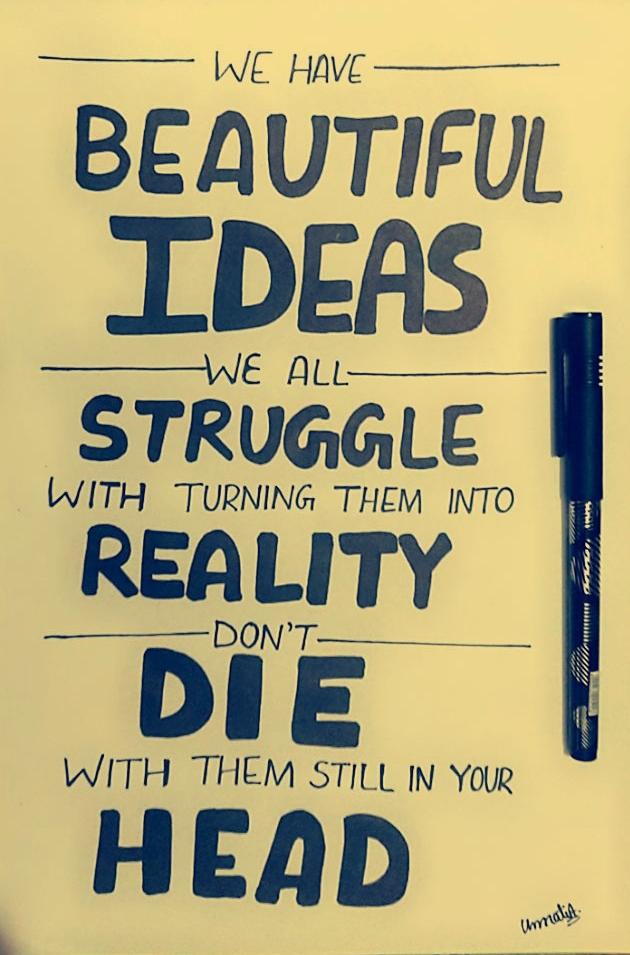 WE HAVE
BEAUTIFUL
IDEAS
WE ALL
STRUGGLE
WITH TURNING THEM INTO
REALITY
DON'T
DIE
WITH THEM STILL IN YOUR
HEAD